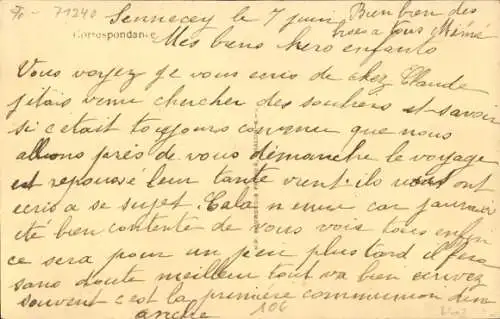 Fr - 71240
Sennecey le 7 juin Bien bien des
bises a tous Mémé
Correspondance
Mes biens chers enfants
Vous voyez je vous ecris de chez Claude
jetais venu chercher des souliers et savoir
si cetait toujours convenu que nous
allions près de vous démanche le voyage
est repoussé leur tante vient ils vous ont
ecris a se sujet. Cela n enuie car jaurais
été bien contente de vous voir tous enfin
ce sera pour un peu plus tard il fera
sans doute meilleur tout va bien ecrivez
souvent c est la première communion dim
anche
106